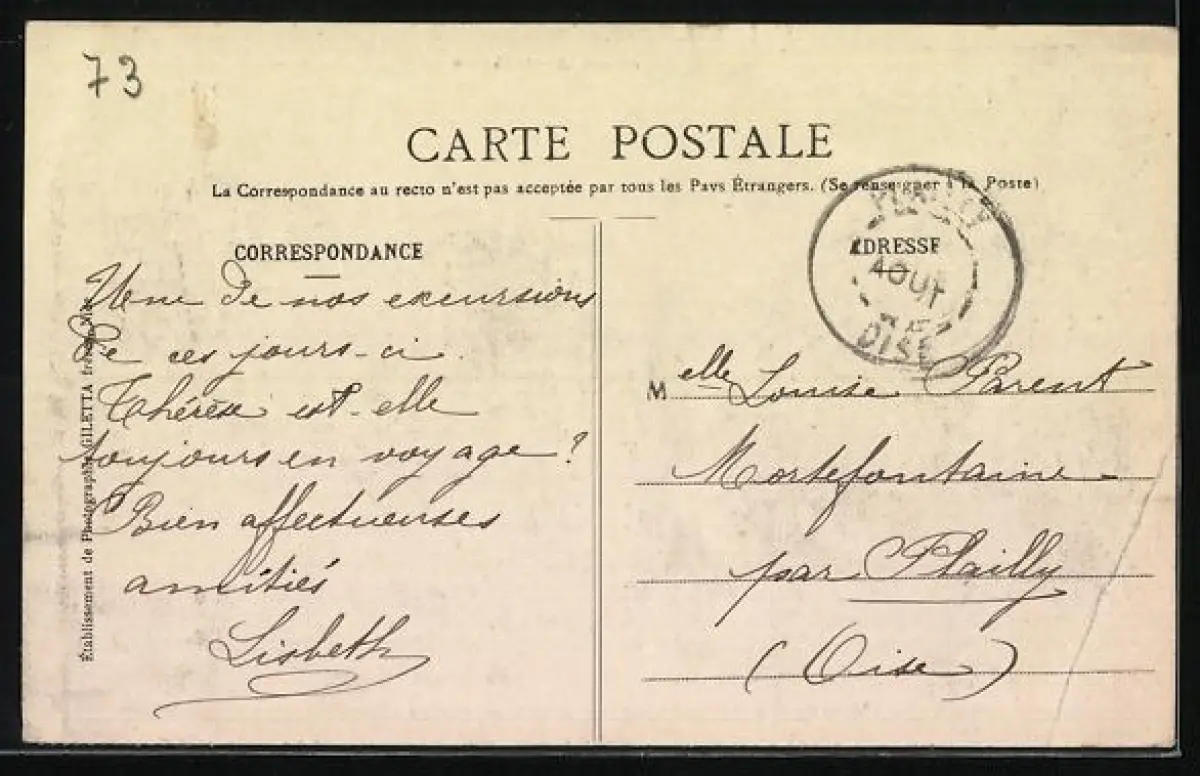 73
CARTE POSTALE
La Correspondance au recto n'est pas acceptée par tous les Pays Étrangers. (Se renseigner à la Poste)
CORRESPONDANCE
Une de nos excursions
de ces jours-ci.
Thérèse est-elle
toujours en voyage?
Bien affectueuses
amitiés
Lisbeth
Établissement de Photographie GILETTA frères
ADRESSE
AOUT
OISE
Melle Louise Parent
Mortefontaine
par Plailly
(Oise)